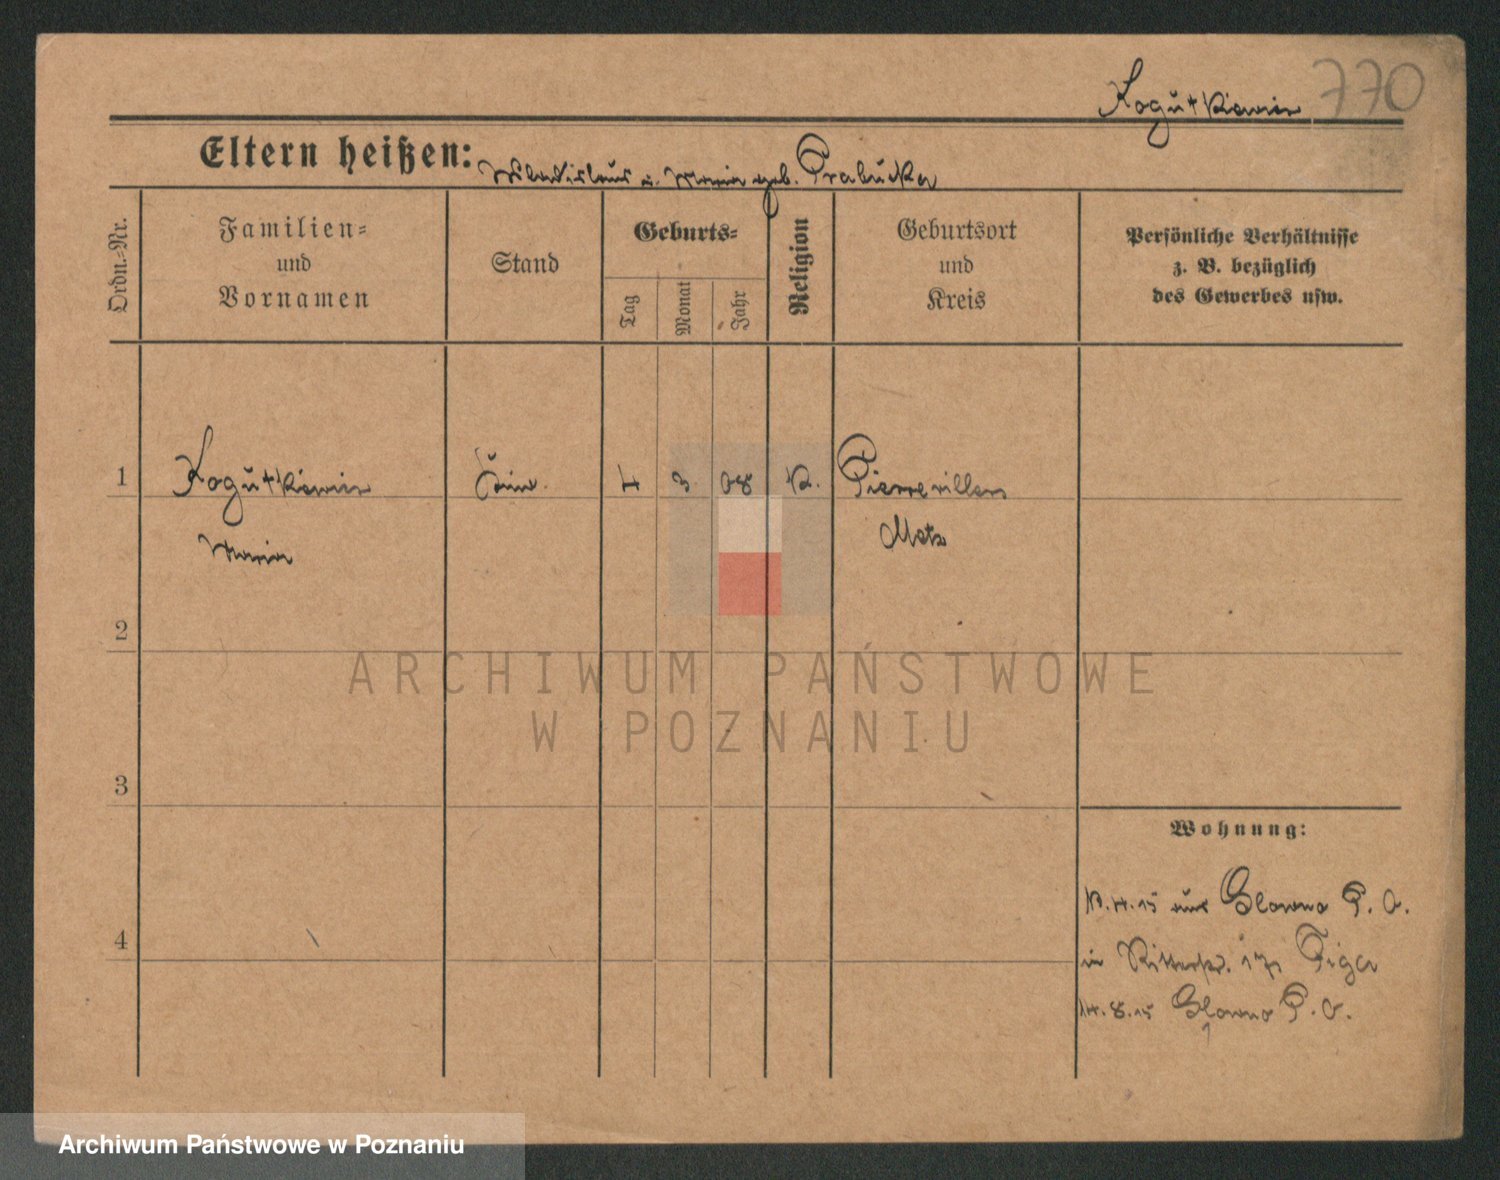 Kogutkiewicz 770
Eltern heißen: Wladislaus u. Maria geb. Grabucka
Ordn.-Nr.
Familien-
und
Vornamen
Stand
Geburts-
Tag
Monat
Jahr
Religion
Geburtsort
und
Kreis
Persönliche Verhältnisse
z. B. bezüglich
des Gewerbes usw.
1 Kogutkiewicz 4 3 08 K. Pierrevillers
Maria Metz
2
ARCHIWUM PAŃSTWOWE
W POZNANIU
3
Wohnung:
aus Glowno P. O.
4
in Ritterstr. 17, Figa
14.8.15 Glowno P. O.
Archiwum Państwowe w Poznaniu